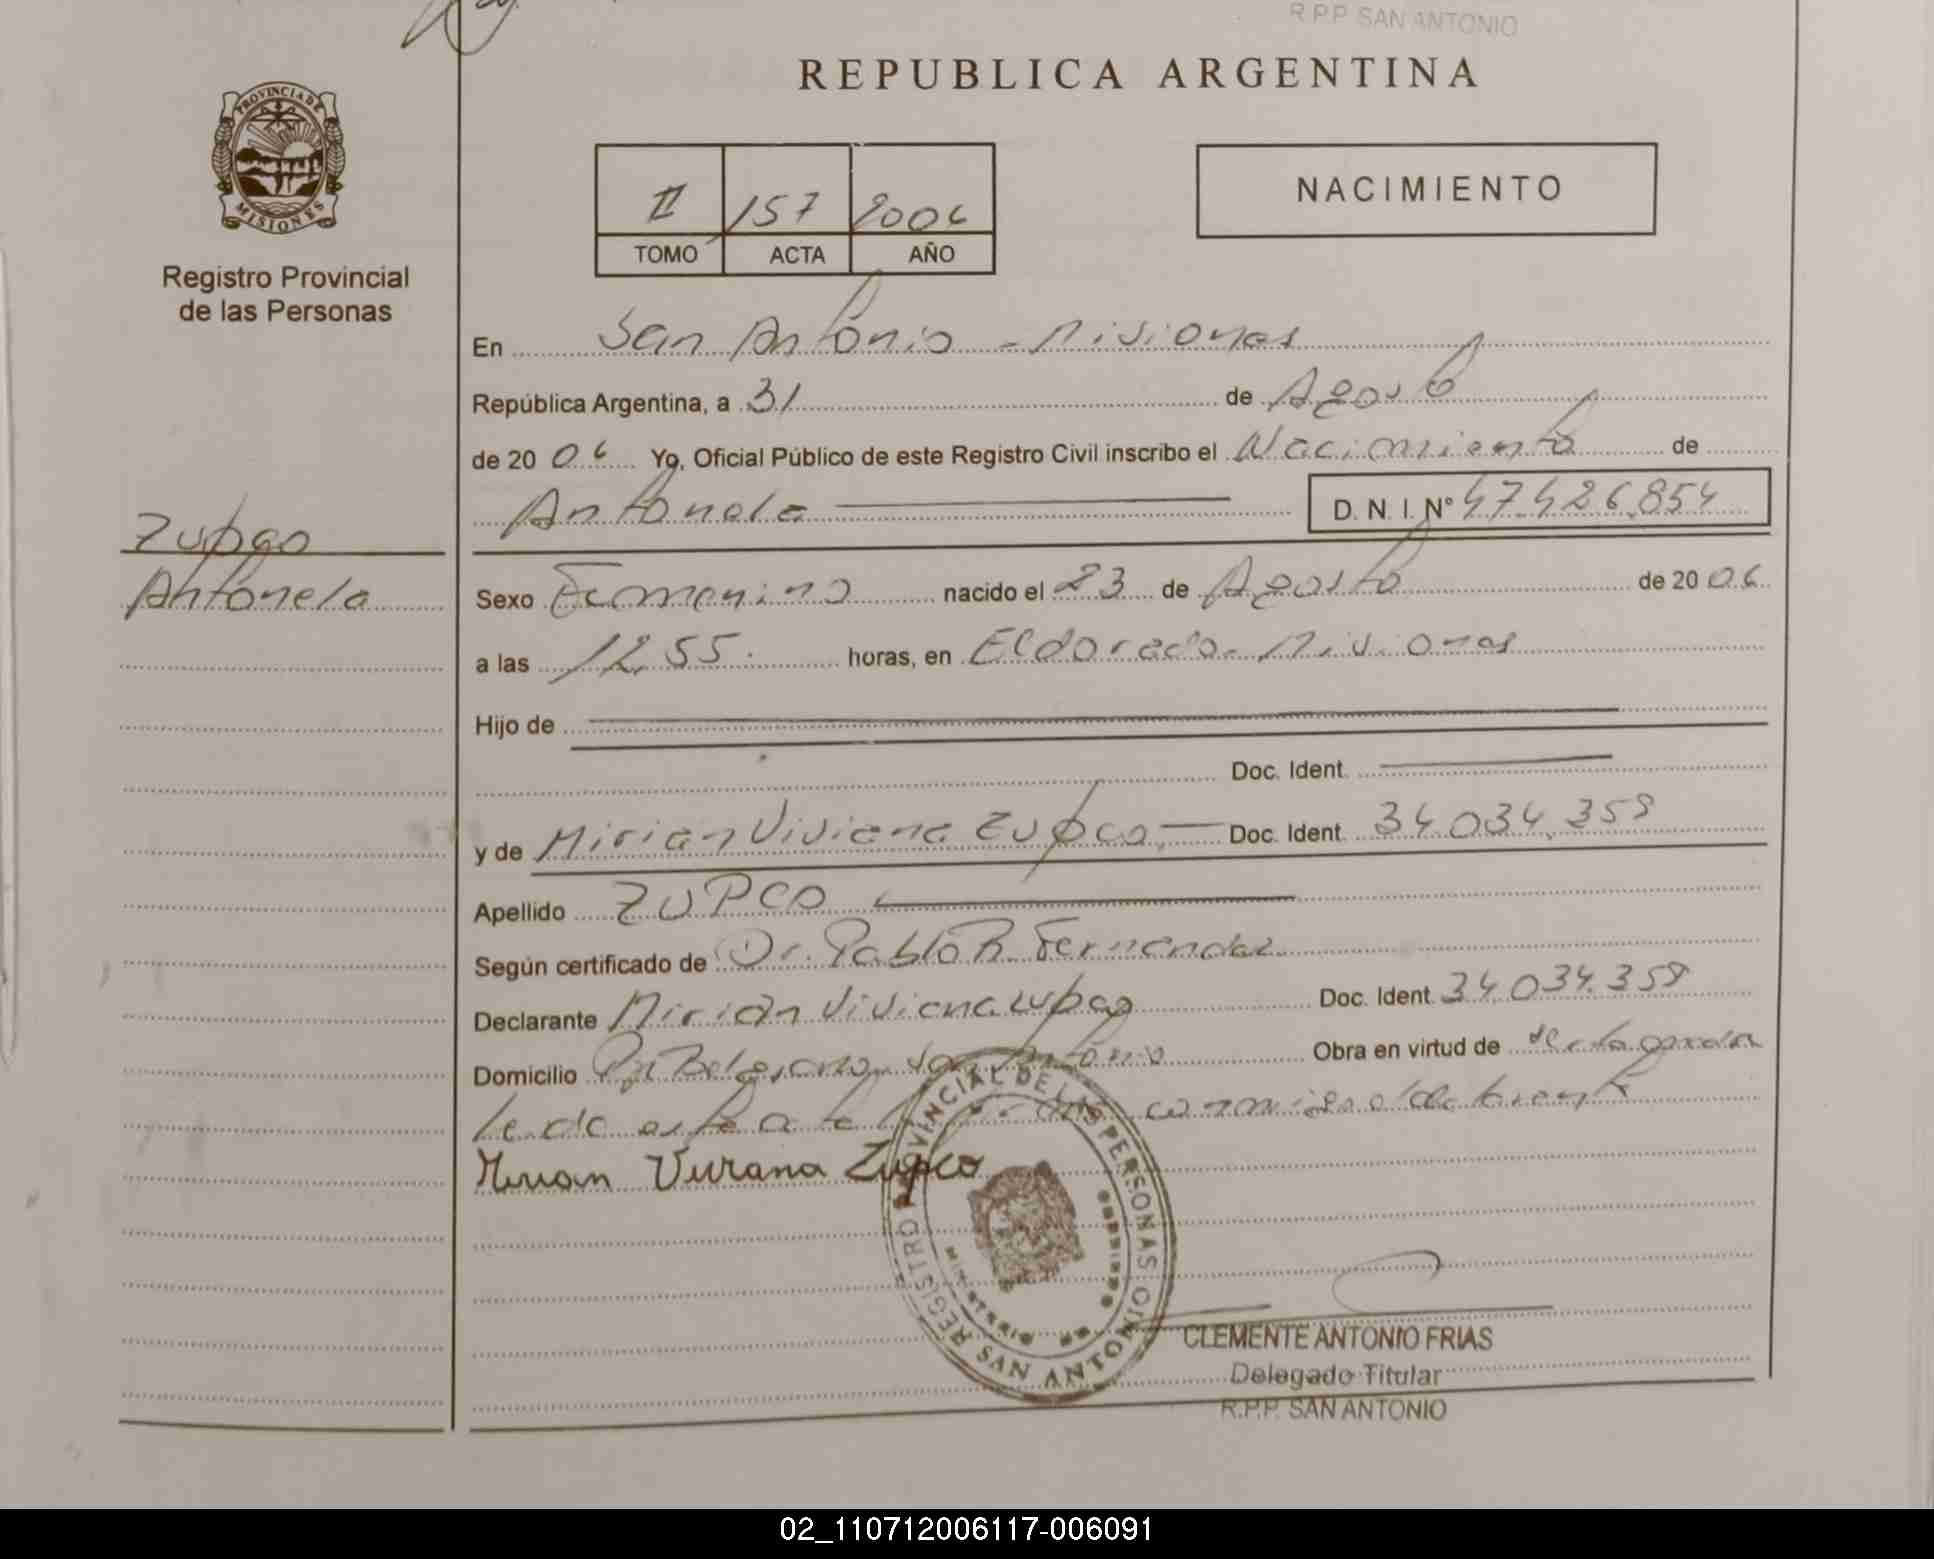 R.P.P SAN ANTONIO
REPUBLICA ARGENTINA
PROVINCIA DE
MISIONES
Registro Provincial
de las Personas
II 157 2006
TOMO ACTA AÑO
NACIMIENTO
En San Antonio - Misiones
República Argentina, a 31 de Agosto
de 20 06 Yo, Oficial Público de este Registro Civil inscribo el Nacimiento de
Antonela D. N. I. Nº 47.426.854
Zupco
Antonela
Sexo Femenino nacido el 23 de Agosto de 20 06
a las 12,55. horas, en Eldorado - Misiones
Hijo de
Doc. Ident.
y de Mirian Viviana Zupco, Doc. Ident. 34.034.359
Apellido ZUPCO
Según certificado de Dr. Pablo R. Fernandez
Declarante Mirian Viviana Zupco Doc. Ident. 34.034.359
Domicilio San Antonio Obra en virtud de
Leida esta acta
Mirian Viviana Zupco
REGISTRO PROVINCIAL DE LAS PERSONAS
SAN ANTONIO
CLEMENTE ANTONIO FRIAS
Delegado Titular
R.P.P. SAN ANTONIO
02_110712006117-006091